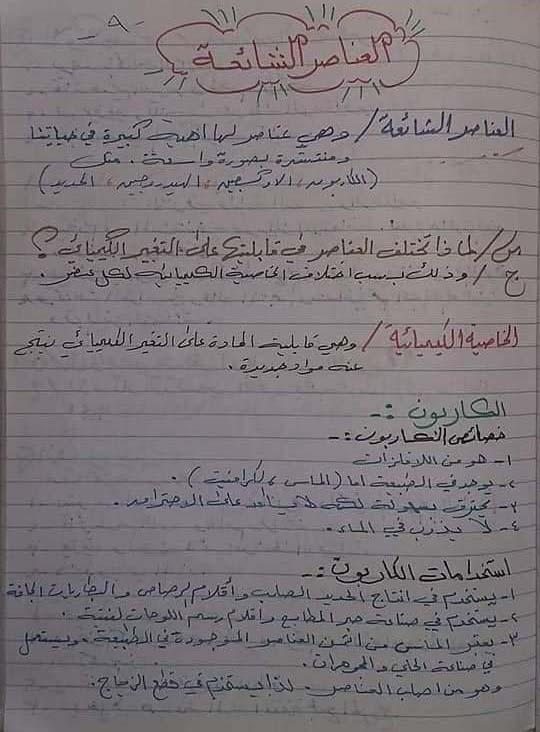 - ٩ -
العناصر الشائعة
العناصر الشائعة / وهي عناصر لها اهمية كبيرة في حياتنا
ومنتشرة بصورة واسعة. مثل
(الكاربون، الاوكسجين، الهيدروجين، الحديد)
س / لماذا تختلف العناصر في قابليتها على التغير الكيميائي؟
ج / وذلك بسبب اختلاف الخاصية الكيميائية لكل عنصر.
الخاصية الكيميائية / وهي قابلية المادة على التغير الكيميائي ينتج
عنه مواد جديدة.
الكاربون :-
خصائص الكاربون :-
١- هو من اللافلزات
٢- يوجد في الطبيعة اما (الماس، كرافيت).
٣- يحترق بسهولة لكنه لا يساعد على الاحتراق.
٤- لا يذوب في الماء.
استخدامات الكاربون :-
١- يستخدم في انتاج الحديد الصلب وأقلام الرصاص والبطاريات الجافة
٢- يستخدم في صناعة حبر المطابع وأقلام رسم اللوحات الفنية.
٣- يعتبر الماس من اثمن العناصر الموجودة في الطبيعة. ويستعمل
في صناعة الحلي والمجوهرات.
وهو من اصلب العناصر. لذا يستخدم في قطع الزجاج.